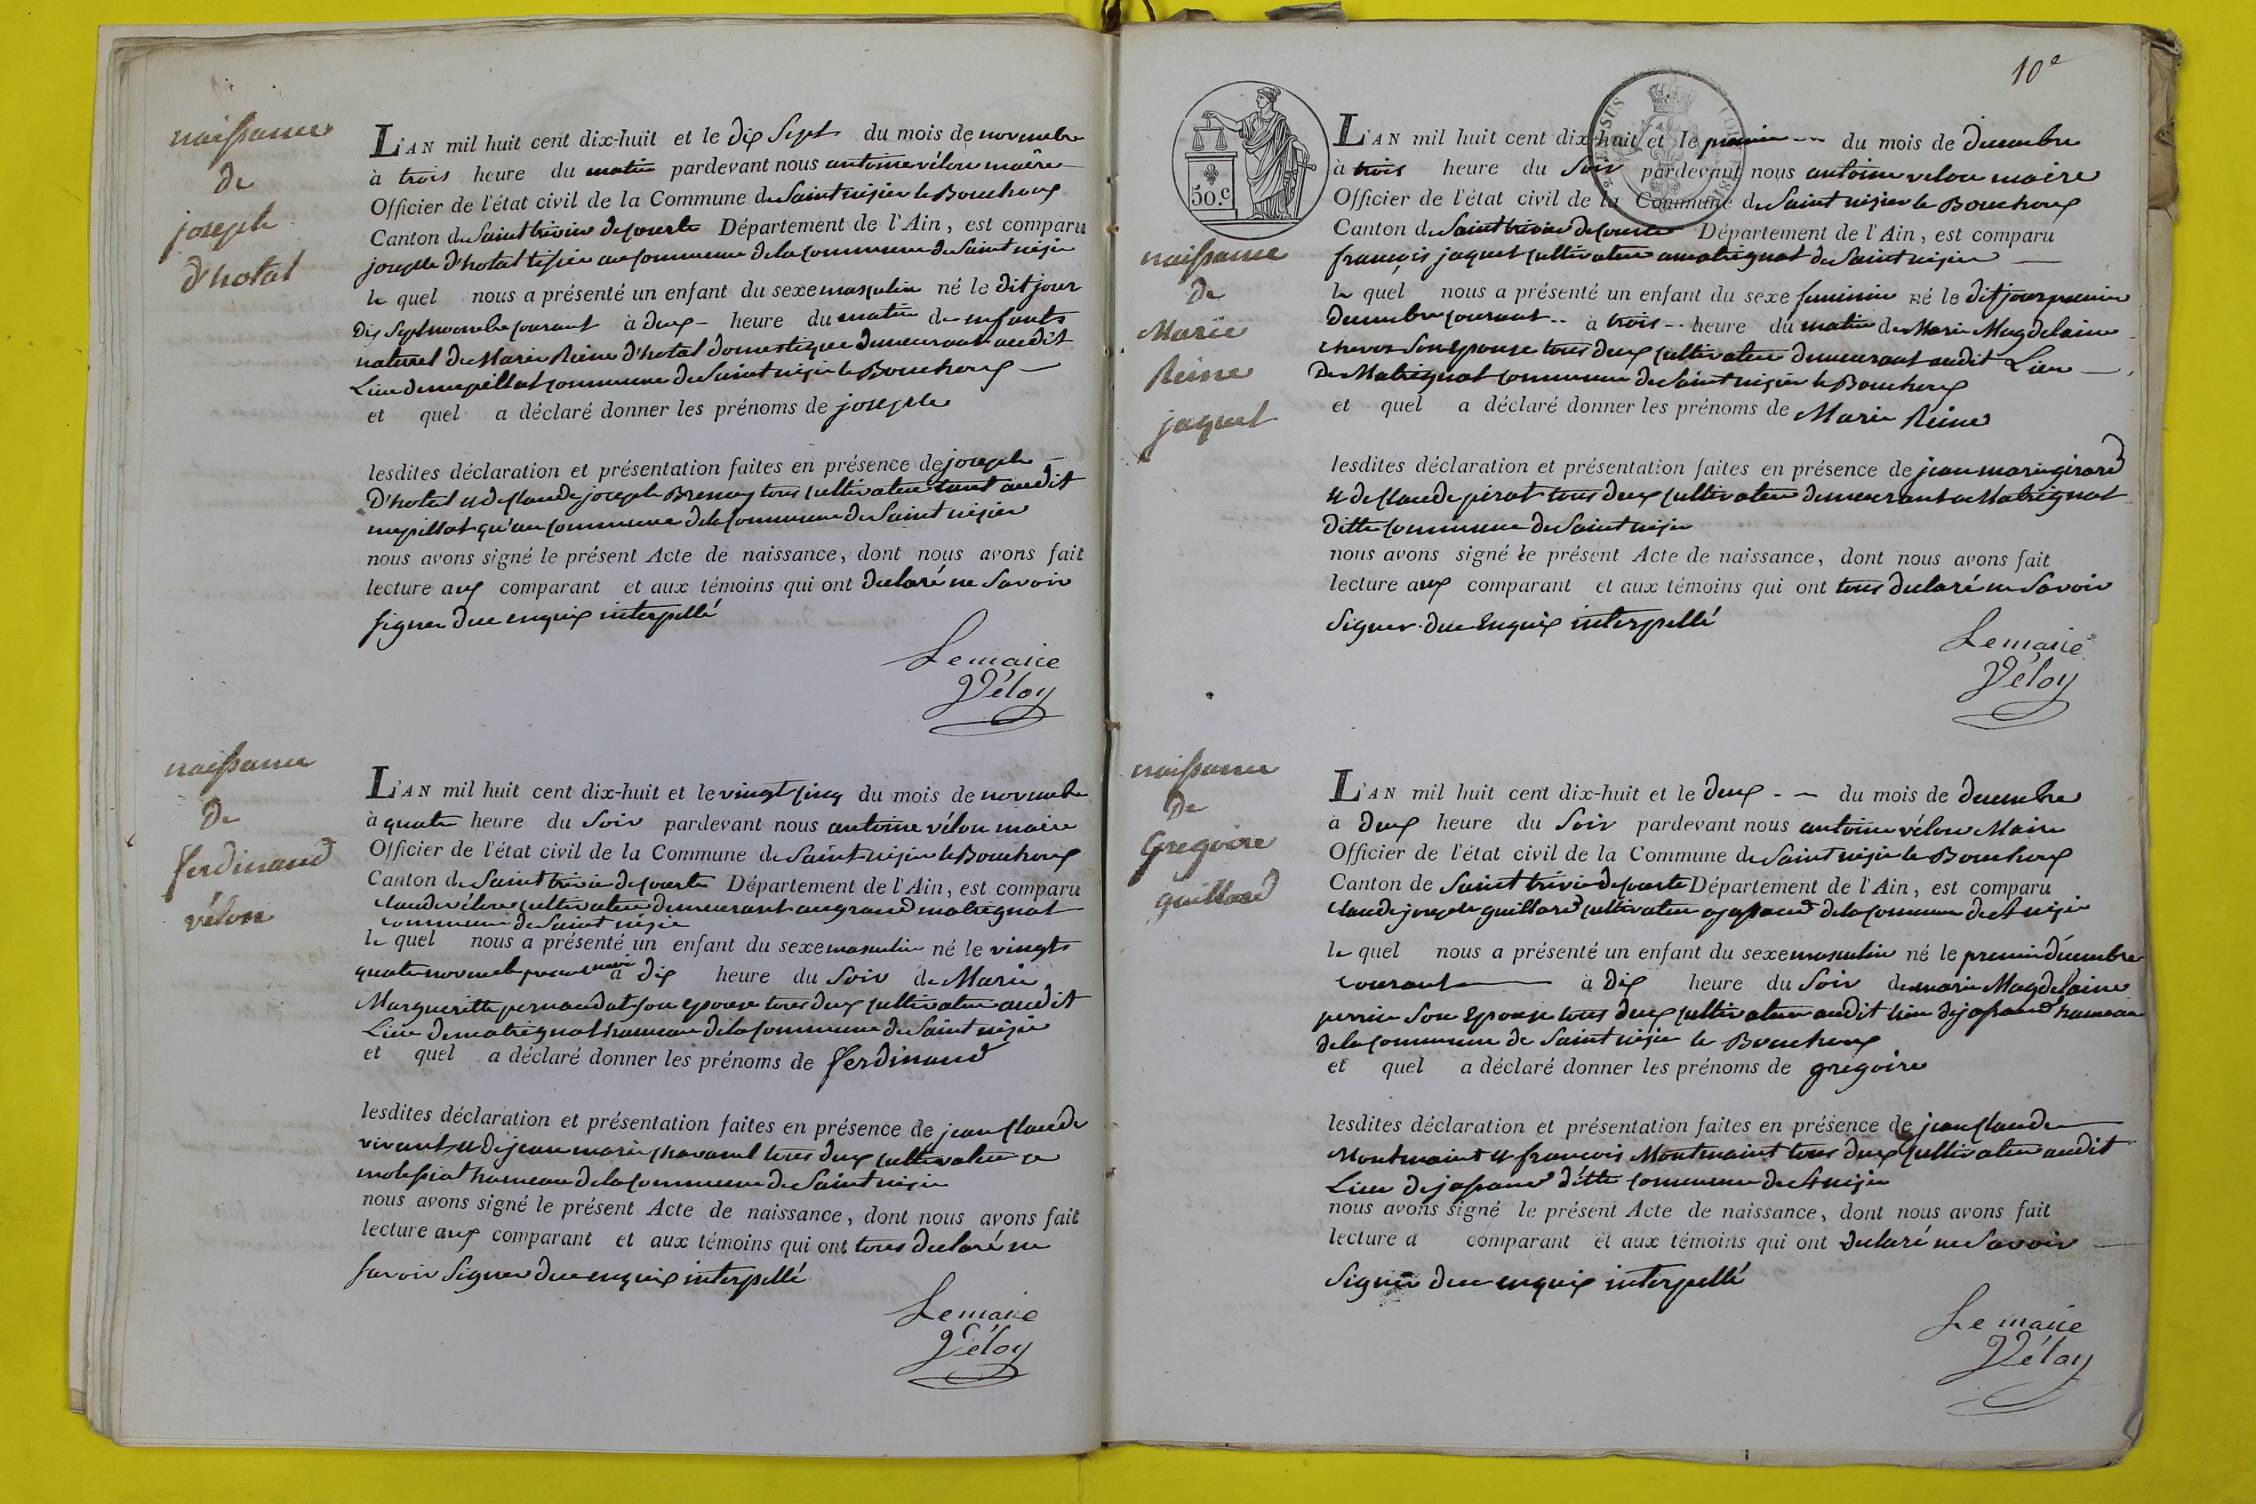 naissance
de
joseph
d'hotal
L'AN mil huit cent dix-huit et le dix Sept du mois de novembre
à trois heure du matin pardevant nous antoine vélon maêre
Officier de l'état civil de la Commune de Saint nisier le Bouchoux
Canton de Saint trivier de courte Département de l'Ain, est comparu
joseph d'hotal tissier au commune de la commune de Saint nisier
le quel nous a présenté un enfant du sexe masculin né le dit jour
dix Sept novembre courant à deux heure du matin de enfants
naturel de Marie Reine d'hotal domestique demeurant audit
Lieu de mepillat commune de Saint nisier le Bouchoux
et quel a déclaré donner les prénoms de joseph
lesdites déclaration et présentation faites en présence de joseph
D'hotal et de Claude joseph tous cultivateur tant audit
mepillat qu'au commune de la commune de Saint nisier
nous avons signé le présent Acte de naissance, dont nous avons fait
lecture aux comparant et aux témoins qui ont declaré ne Savoir
signer due enquix interpellé
Lemaire
Véloy
naissance
de
ferdinand
vélon
L'AN mil huit cent dix-huit et le vingt cinq du mois de novembre
à quatre heure du Soir pardevant nous antoine vélon maire
Officier de l'état civil de la Commune de Saint nisier le Bouchoux
Canton de Saint trivier de courte Département de l'Ain, est comparu
claude vélon cultivateur demeurant au grand matrignat
commune de Saint nisier
le quel nous a présenté un enfant du sexe masculin né le vingts
quatre novembre à dix heure du Soir de Marie
Margueritte pernaudat Son epouse tous deux cultivateur audit
Lieu de matrignat hameau de la commune de Saint nisier
et quel a déclaré donner les prénoms de ferdinand
lesdites déclaration et présentation faites en présence de jean Claude
vivant et de jean marie chavanel tous deux cultivateur a
molissiat hameau de la commune de Saint nisier
nous avons signé le présent Acte de naissance, dont nous avons fait
lecture aux comparant et aux témoins qui ont tous declaré ne
savoir Signer due enquix interpellé
Lemaire
Véloy
10e
50.c
L'AN mil huit cent dix-huit et le premier du mois de decembre
à trois heure du Soir pardevant nous antoine velon maire
Officier de l'état civil de la Commune de Saint nisier le Bouchoux
Canton de Saint trivier de courte Département de l'Ain, est comparu
naissance
de
Marie
Reine
jaquet
françois jaquet cultivateur a matrignat de Saint nisier
le quel nous a présenté un enfant du sexe feminin né le dit jour premier
decembre courant à trois heure du matin de Marie Magdelaine
chevos Son epouse tous deux cultivateur demeurant audit Lieu
De Matrignat commune de Saint nisier le Bouchoux
et quel a déclaré donner les prénoms de Marie Reine
lesdites déclaration et présentation faites en présence de jean marie girard
et de Claude pirat tous deux cultivateur demeurant a Matrignat
ditte commune de Saint nisier
nous avons signé le présent Acte de naissance, dont nous avons fait
lecture aux comparant et aux témoins qui ont tous declaré ne Savoir
Signer due Enquix interpellé
Lemaire
Véloy
naissance
de
Gregoire
guillard
L'AN mil huit cent dix-huit et le deux du mois de decembre
à deux heure du Soir pardevant nous antoine vélon Maire
Officier de l'état civil de la Commune de Saint nisier le Bouchoux
Canton de Saint trivier de courte Département de l'Ain, est comparu
claude joseph guillard cultivateur a jassand de la commune de St nisier
le quel nous a présenté un enfant du sexe masculin né le premier décembre
courant à dix heure du Soir de marie Magdelaine
perrin Son Epouse tous deux cultivateur audit lieu de jassand hameau
de la commune de Saint nisier le Bouchoux
et quel a déclaré donner les prénoms de gregoire
lesdites déclaration et présentation faites en présence de jean Claude
Montmaint et francois Montmaint tous deux cultivateur audit
Lieu de jassand ditte commune de St nisier
nous avons signé le présent Acte de naissance, dont nous avons fait
lecture a comparant et aux témoins qui ont declaré ne Savoir
Signer due enquix interpellé
Le maire
Véloy